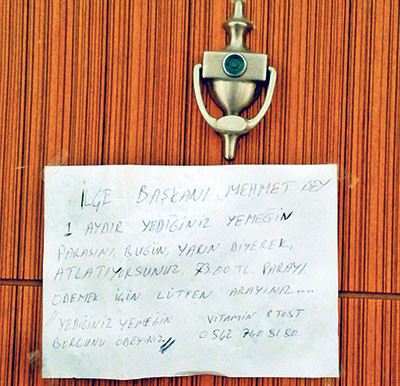 İLÇE BAŞKANI MEHMET BEY
1 AYDIR YEDİĞİNİZ YEMEĞİN
PARASINI, BUGÜN, YARIN DİYEREK,
ATLATIYORSUNUZ, 73.00 TL. PARAYI
ÖDEMEK İÇİN LÜTFEN ARAYINIZ....
"YEDİĞİNİZ YEMEĞİN
BORCUNU ÖDEYİNİZ"
VİTAMİN & TOST
0 542 740 51 50